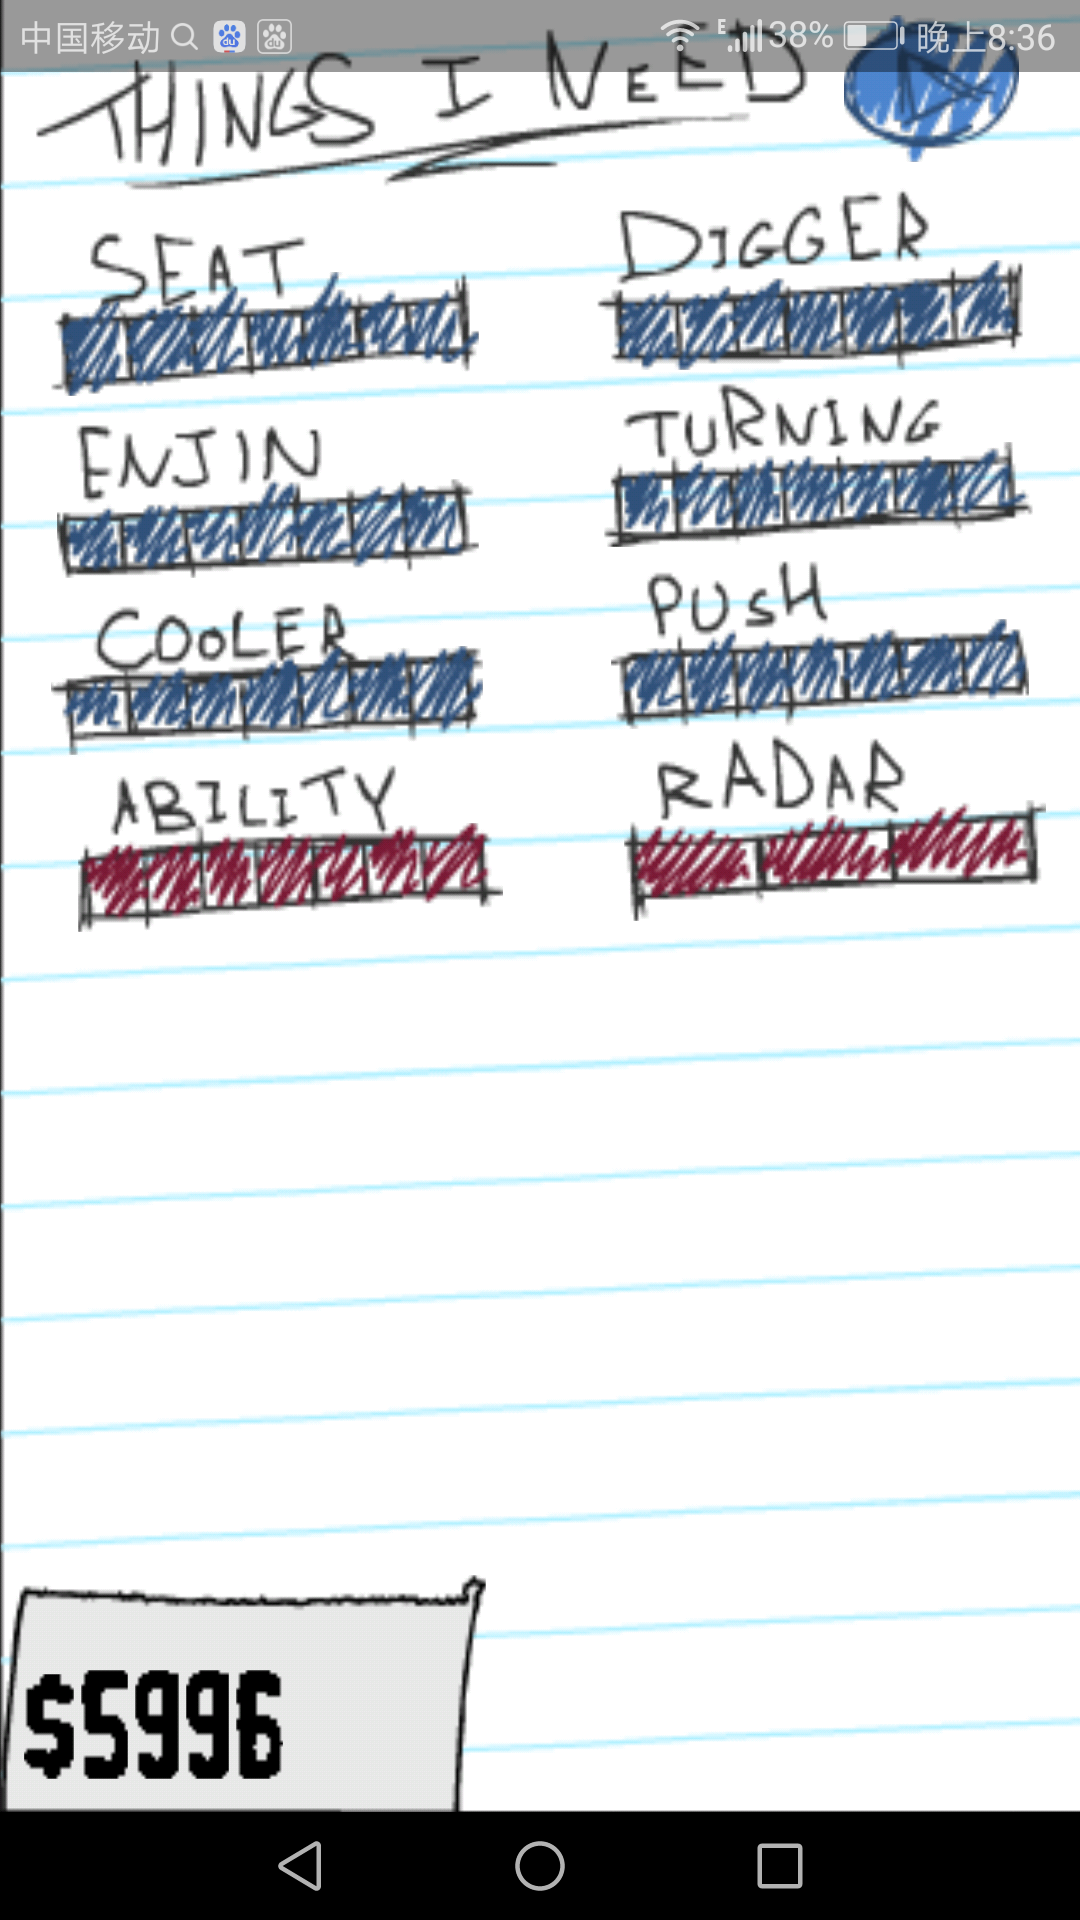 中国移动 E 38% 晚上8:36
THINGS I NEED
SEAT DIGGER
ENJIN TURNING
COOLER PUSH
ABILITY RADAR
$5996